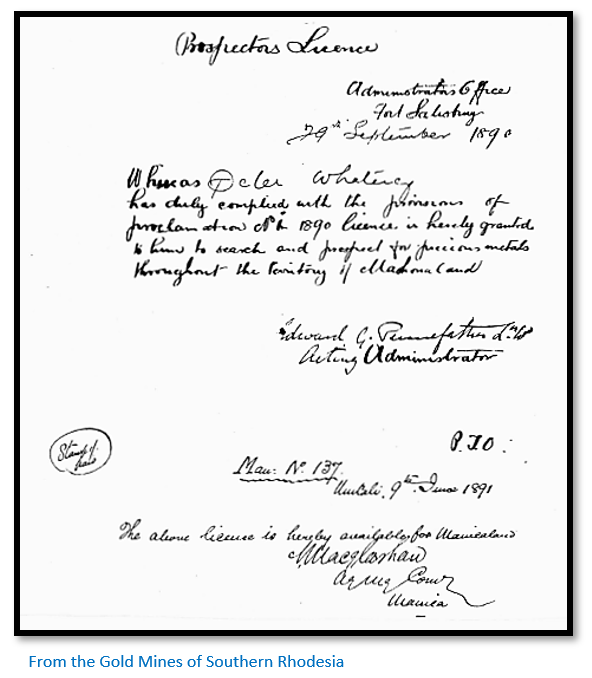 Prospectors Licence
Administrators Office
Fort Salisbury
29th September 1890
Whereas Peter
has duly complied with the provisions of
proclamation No 1 1890 licence is hereby granted
to him to search and prospect for precious metals
throughout the territory of Mashonaland
Edward G. Pennefather
Acting Administrator
P.T.O.
Stamp of
Man: No. 137.
Umtali, 9th June 1891
The above license is hereby available for Manicaland
Macglashan
Acting Comr
Manica
From the Gold Mines of Southern Rhodesia